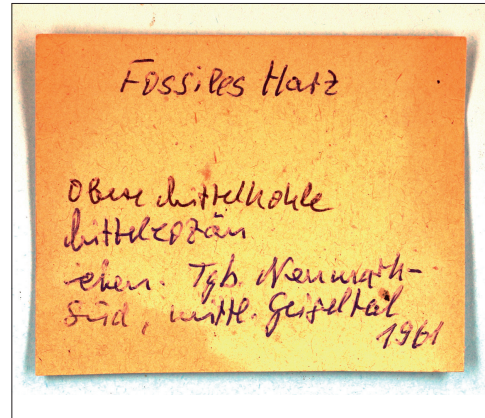 Fossiles Harz
Obere Mittelkohle
Mitteleozän
ehem. Tgb. Neumark-
Süd, mittl. Geiseltal
1961